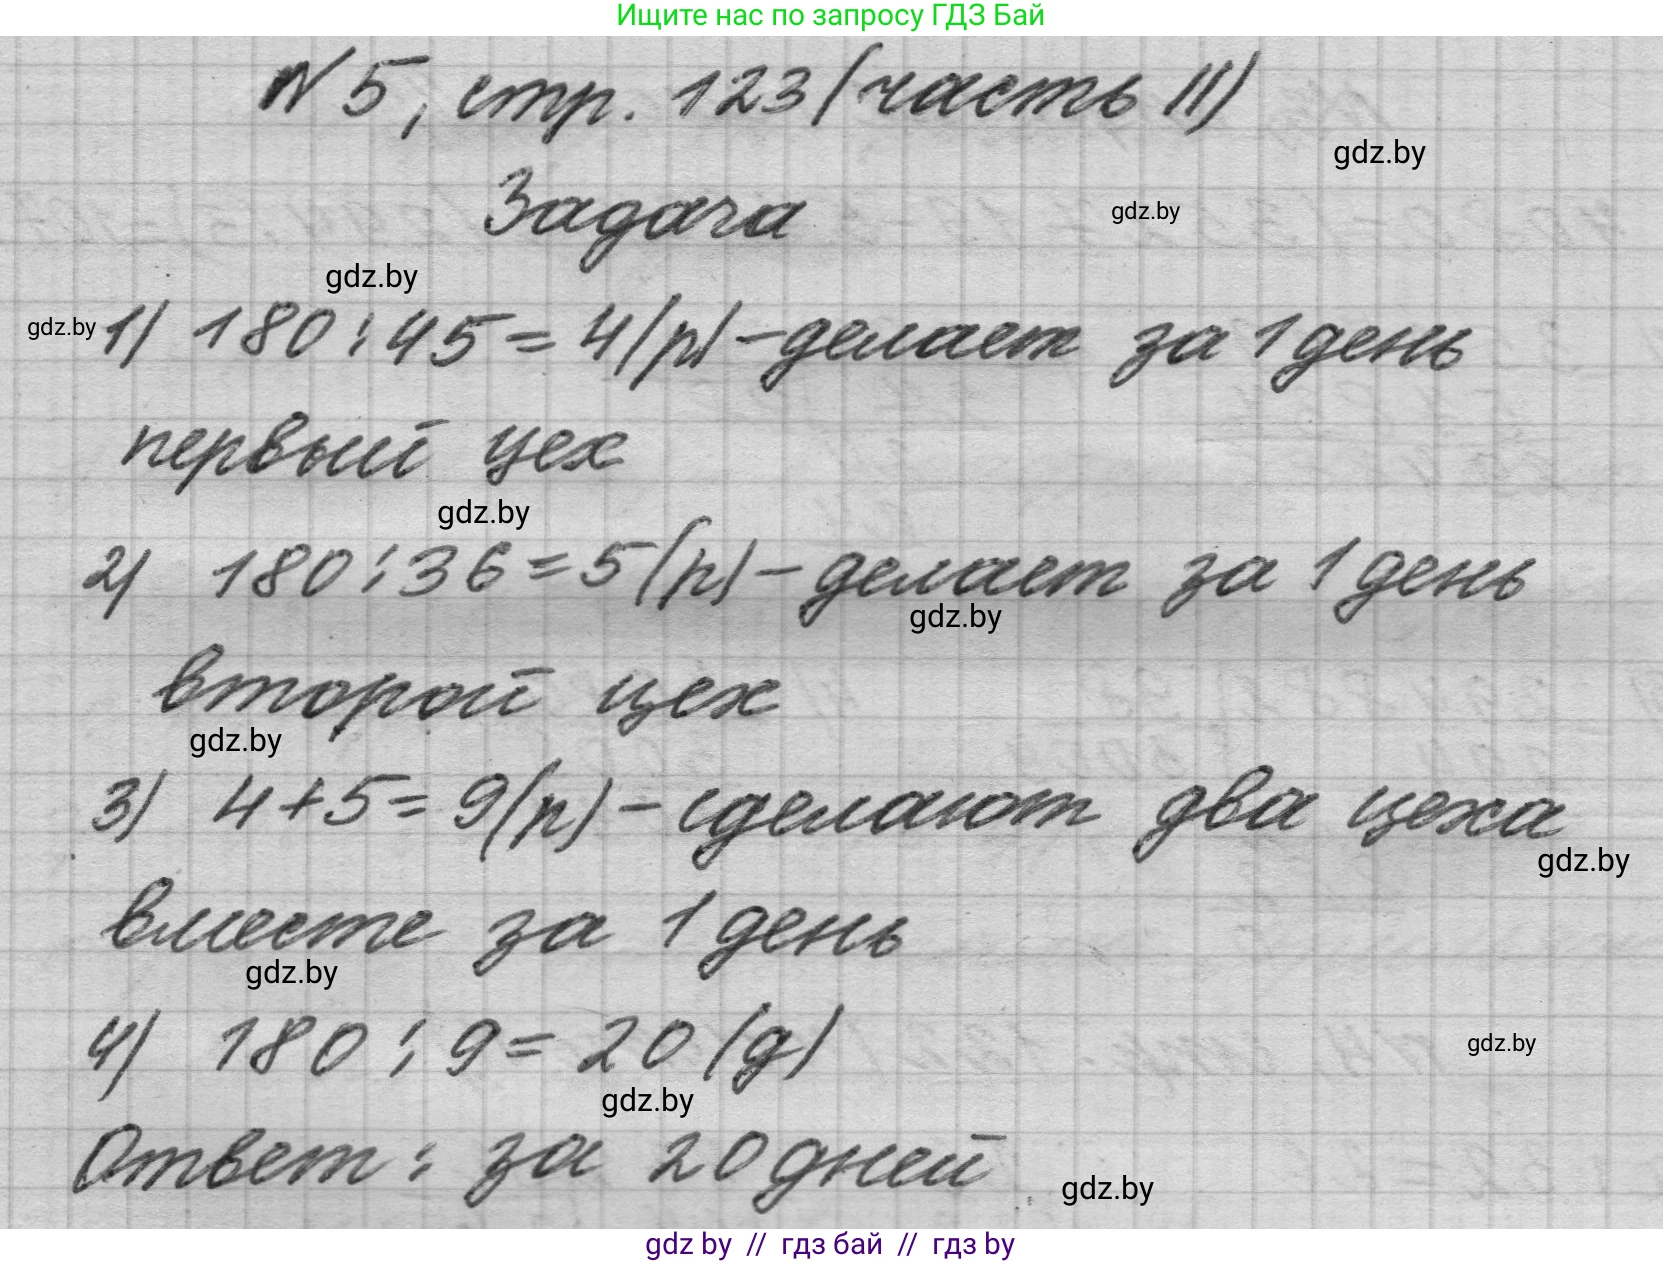 Ищите нас по запросу ГДЗ Бай
№ 5, стр. 123 (часть II)
gdz.by
Задача
gdz.by
gdz.by
gdz.by
1) 180 : 45 = 4 (р) - делает за 1 день
первый цех
gdz.by
2) 180 : 36 = 5 (р) - делает за 1 день
gdz.by
второй цех
gdz.by
3) 4 + 5 = 9 (р) - сделают два цеха
gdz.by
вместе за 1 день
gdz.by
4) 180 : 9 = 20 (д)
gdz.by
gdz.by
Ответ: за 20 дней
gdz.by
gdz by // гдз бай // гдз by